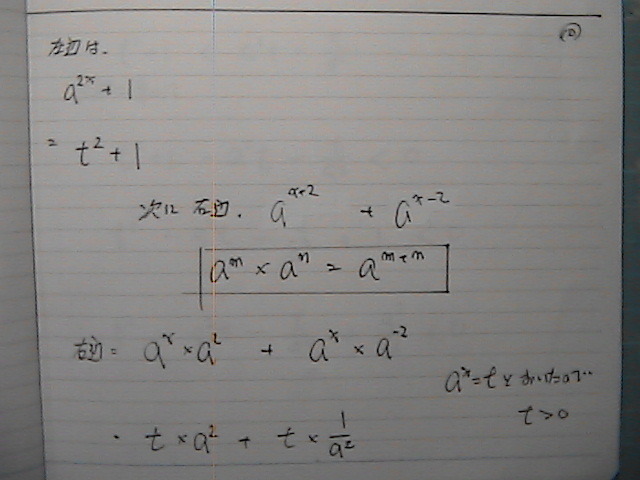 ⑩
左辺は、
a^{2x} + 1
= t^2 + 1
次に 右辺. a^{x+2} + a^{x-2}
a^m × a^n = a^{m+n}
右辺 = a^x × a^2 + a^x × a^{-2}
a^x = t と おいたので
t > 0
t × a^2 + t × \frac{1}{a^2}